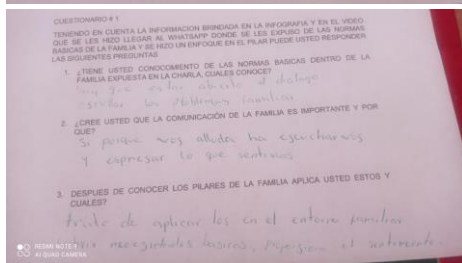 CUESTIONARIO # 1
TENIENDO EN CUENTA LA INFORMACION BRINDADA EN LA INFOGRAFIA Y EN EL VIDEO
QUE SE LES HIZO LLEGAR AL WHATSAPP DONDE SE LES EXPUSO DE LAS NORMAS
BASICAS DE LA FAMILIA Y SE HIZO UN ENFOQUE EN EL PILAR PUEDE USTED RESPONDER
LAS SIGUIENTES PREGUNTAS
1. ¿TIENE USTED CONOCOMIENTO DE LAS NORMAS BASICAS DENTRO DE LA
FAMILIA EXPUESTA EN LA CHARLA, CUALES CONOCE?
que estar abierto al dialogo
los problemas
2. ¿CREE USTED QUE LA COMUNICACIÓN DE LA FAMILIA ES IMPORTANTE Y POR
QUE?
Si porque nos alluda ha escucharnos
y expresar lo que sentimos
3. DESPUES DE CONOCER LOS PILARES DE LA FAMILIA APLICA USTED ESTOS Y
CUALES?
trato de aplicar los en el entorno familiar
basicas, el sentimiento
REDMI NOTE 9
AI QUAD CAMERA